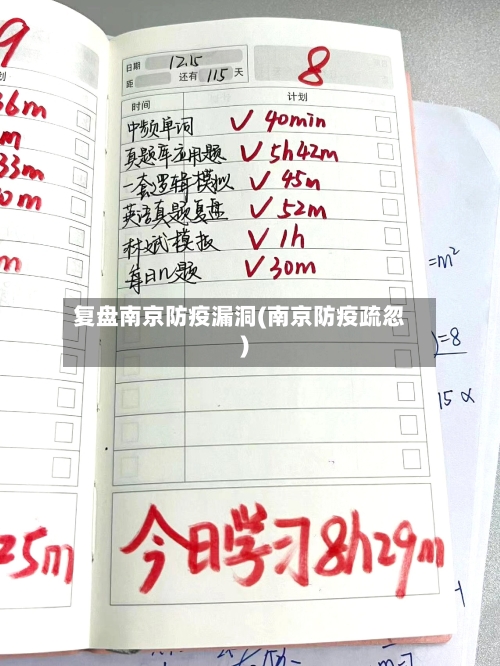 9
划
36m
m
33m
0m
m
25m
日期 12.15
8
距 还有 115 天
时间 计划
中频单词 ✓ 40min
真题库应用题 ✓ 5h42m
一套逻辑模拟 ✓ 45m
英语真题复盘 ✓ 52m
林斌模拟 ✓ 1h
每日n题 ✓ 30m
复盘南京防疫漏洞(南京防疫疏忽
)
今日学习8h29m
=m²
)=8
15 α
m-7